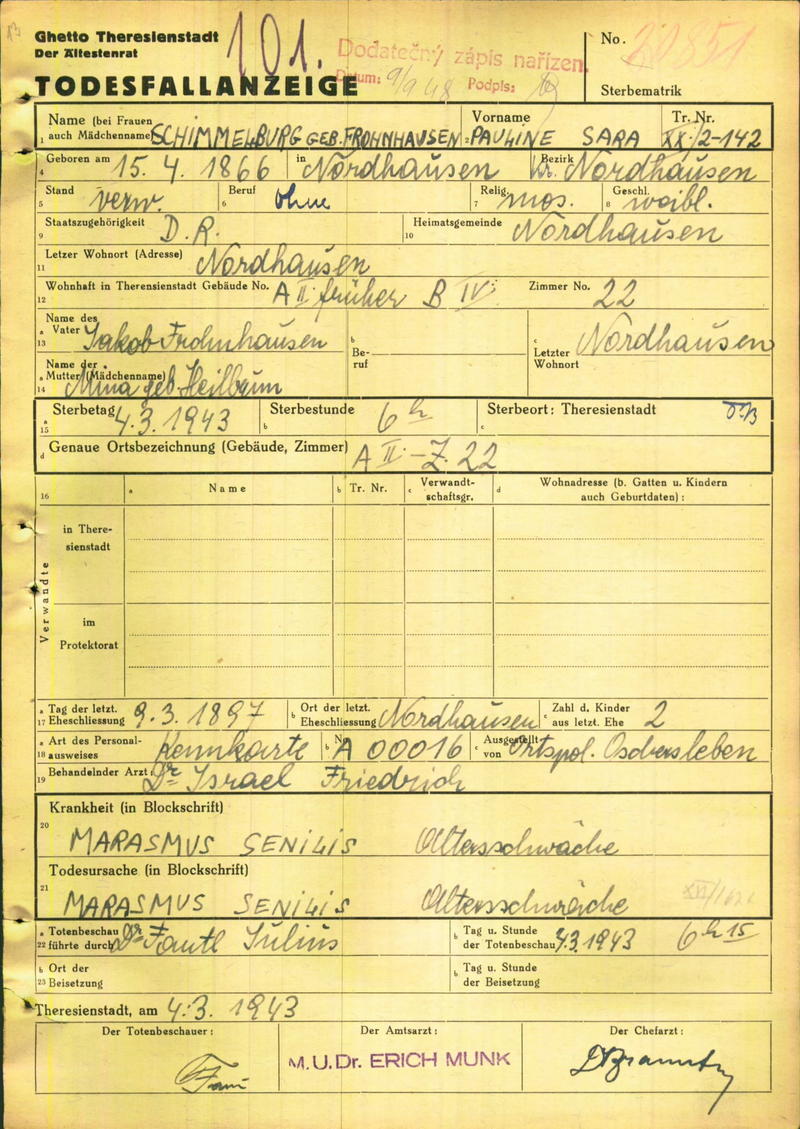 Ghetto Theresienstadt
Der Ältestenrat
101.
Dodatečný zápis nařízen.
Datum: 9/9 48 Podpis:
No.
TODESFALLANZEIGE
Sterbematrik
Name (bei Frauen auch Mädchenname) SCHIMMELBURG GEB. FROHNHAUSEN Vorname PAULINE SARA Tr. Nr. XX/2-142
1
4 Geboren am 15. 4. 1866 in Nordhausen Bezirk Nordhausen
5 Stand verw. 6 Beruf ohne 7 Relig. mos. 8 Geschl. weibl.
9 Staatszugehörigkeit D.R. 10 Heimatsgemeinde Nordhausen
11 Letzer Wohnort (Adresse) Nordhausen
12 Wohnhaft in Theresienstadt Gebäude No. A II früher B IV Zimmer No. 22
13 a Name des Vater Jakob Frohnhausen b Beruf c Letzter Wohnort Nordhausen
14 a Name der Mutter (Mädchenname) Mina geb. Heilbrun
15 a Sterbetag 4.3.1943 b Sterbestunde 6h c Sterbeort: Theresienstadt
d Genaue Ortsbezeichnung (Gebäude, Zimmer) A II - Z. 22
16 a Name b Tr. Nr. c Verwandtschaftsgr. d Wohnadresse (b. Gatten u. Kindern auch Geburtdaten):
Verwandte
in Theresienstadt
im Protektorat
17 a Tag der letzt. Eheschliessung 9.3.1897 b Ort der letzt. Eheschliessung Nordhausen c Zahl d. Kinder aus letzt. Ehe 2
18 a Art des Personalausweises Kennkarte b No. A 00016 c Ausgestellt von Ortspol. Oschersleben
19 Behandelnder Arzt: Dr Israel Friedrich
Krankheit (in Blockschrift)
20 MARASMUS SENILIS Altersschwäche
Todesursache (in Blockschrift)
21 MARASMUS SENILIS Altersschwäche
22 a Totenbeschau führte durch Dr Fantl Julius b Tag u. Stunde der Totenbeschau 4.3.1943 6h 15
23 b Ort der Beisetzung b Tag u. Stunde der Beisetzung
Theresienstadt, am 4.3.1943
Der Totenbeschauer: Der Amtsarzt: Der Chefarzt:
M.U.Dr. ERICH MUNK